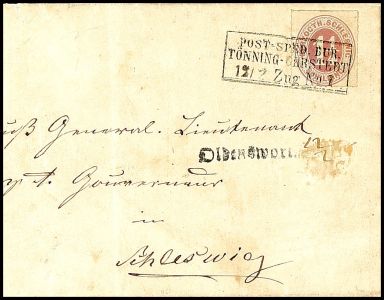 HERZOGTH. SCHLESWIG
POST-SPED. BUR.
TÖNNING-OHRSTEDT
12/2 Zug No 2
General-Lieutenant
Oldenswort
Gouverneur
in
Schleswig